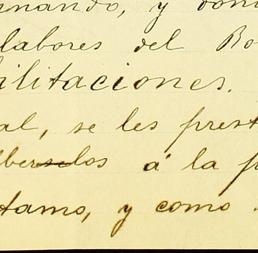 nando, y don
labores del Bo
ilitaciones.
al, se les prest
los á la p
tamo, y como